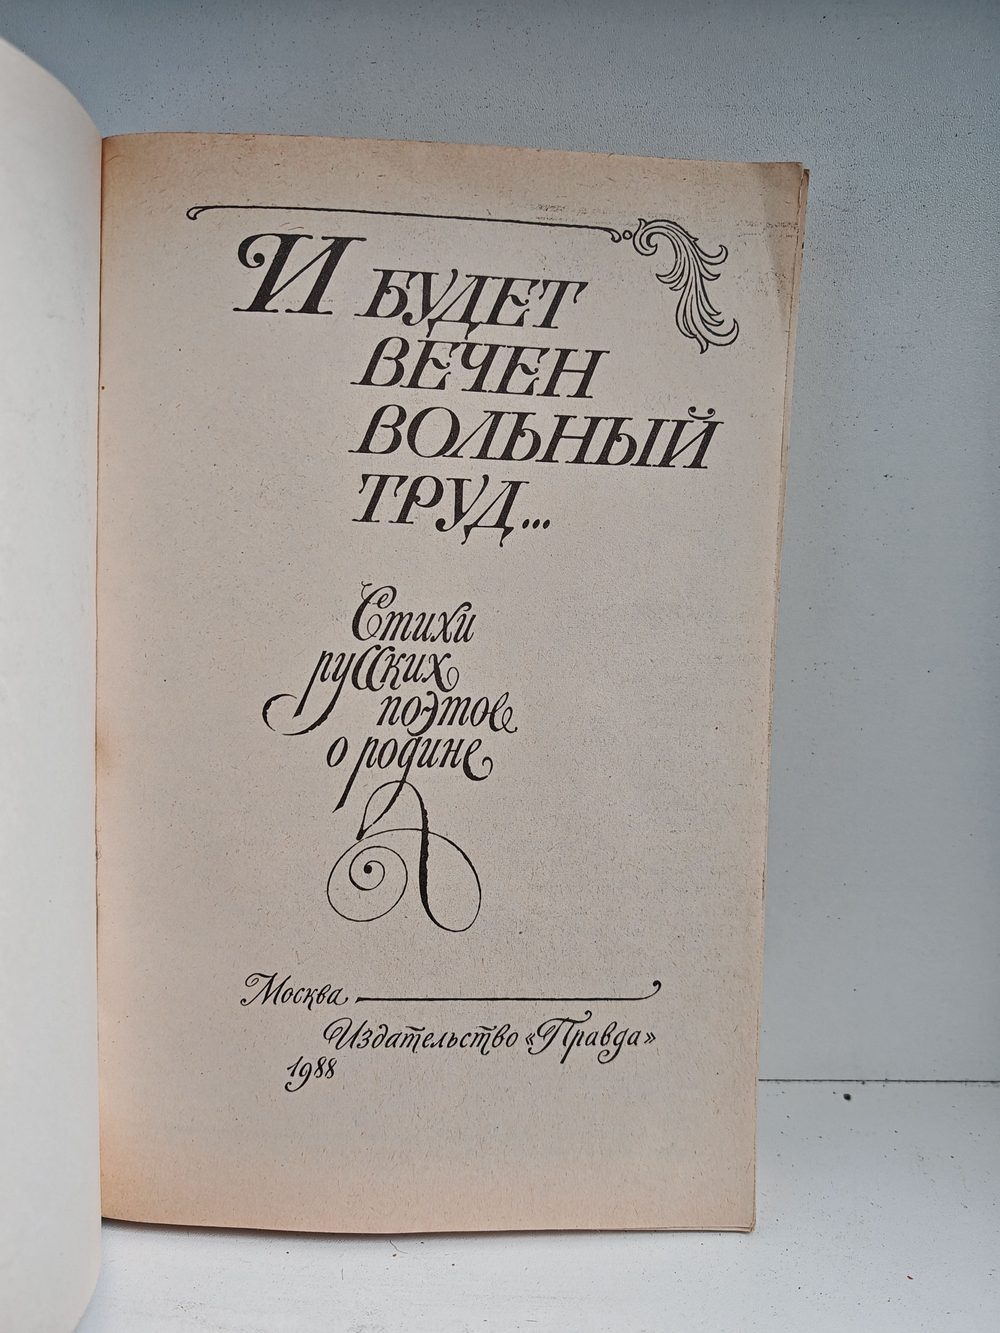 И БУДЕТ
ВЕЧЕН
ВОЛЬНЫЙ
ТРУД...
Стихи
русских
поэтов
о родине
Москва
Издательство «Правда»
1988